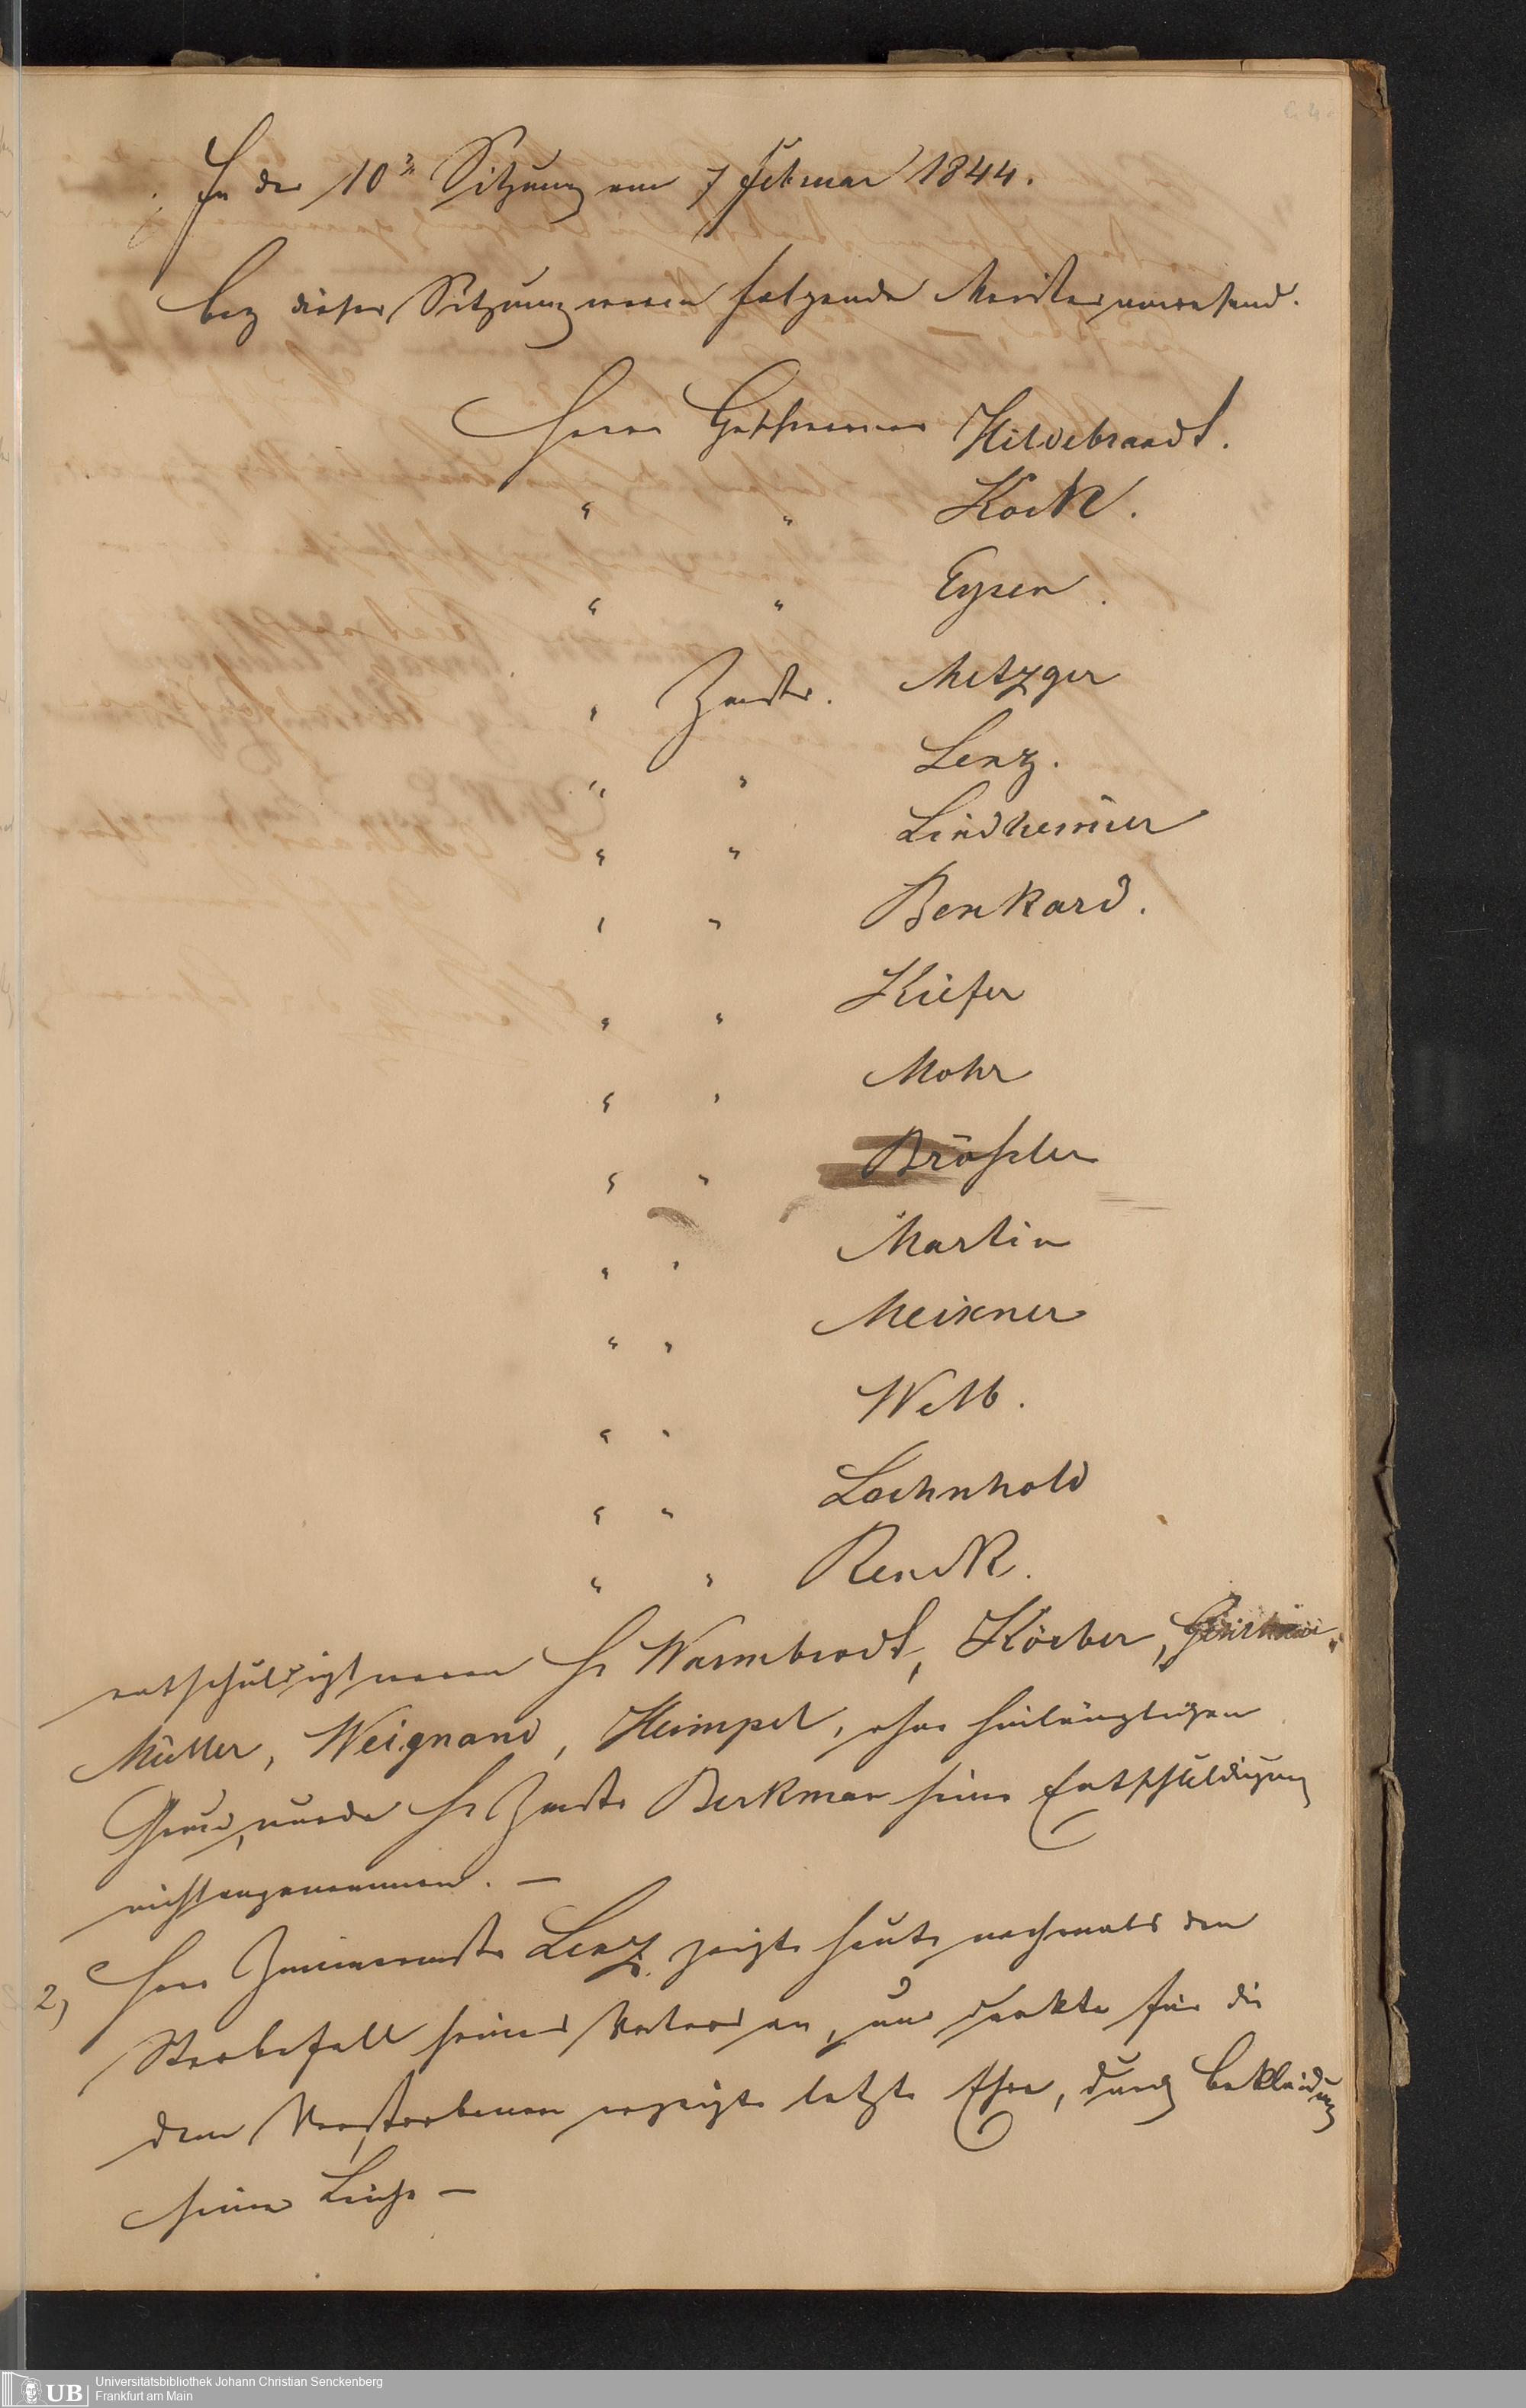 In der 10n Sitzung am 7 Februar 1844.
bey dieser Sitzung waren folgende Meister anwesend.
Herrn Geschworner Hildebrandt.
" " Kock.
" " Eysen.
" Zmstr. Metzger
" " Lenz.
" " Lindheimer
" " Benkard.
" " Kiefer
" " Mohr
" " Bröhler
" " Martin
" " Meixner
" " Welb.
" " Lochnhold
" " Renck.
entschuldigt waren Hr Warmbrodt, Körber,
Müller, Weignand, Heimpel, ohne hinlänglichen
Grund, wurde Hr Zmstr Berkman seine Entschuldigung
nicht angenommen. —
2, Herr Zimmermstr Lenz zeigte heute nochmals den
Sterbefall seines Vaters an, und dankte für die
dem Verstorbenen erzeigte letzte Ehre, durch Bekleidung
seiner Leiche —
UB Universitätsbibliothek Johann Christian Senckenberg
Frankfurt am Main